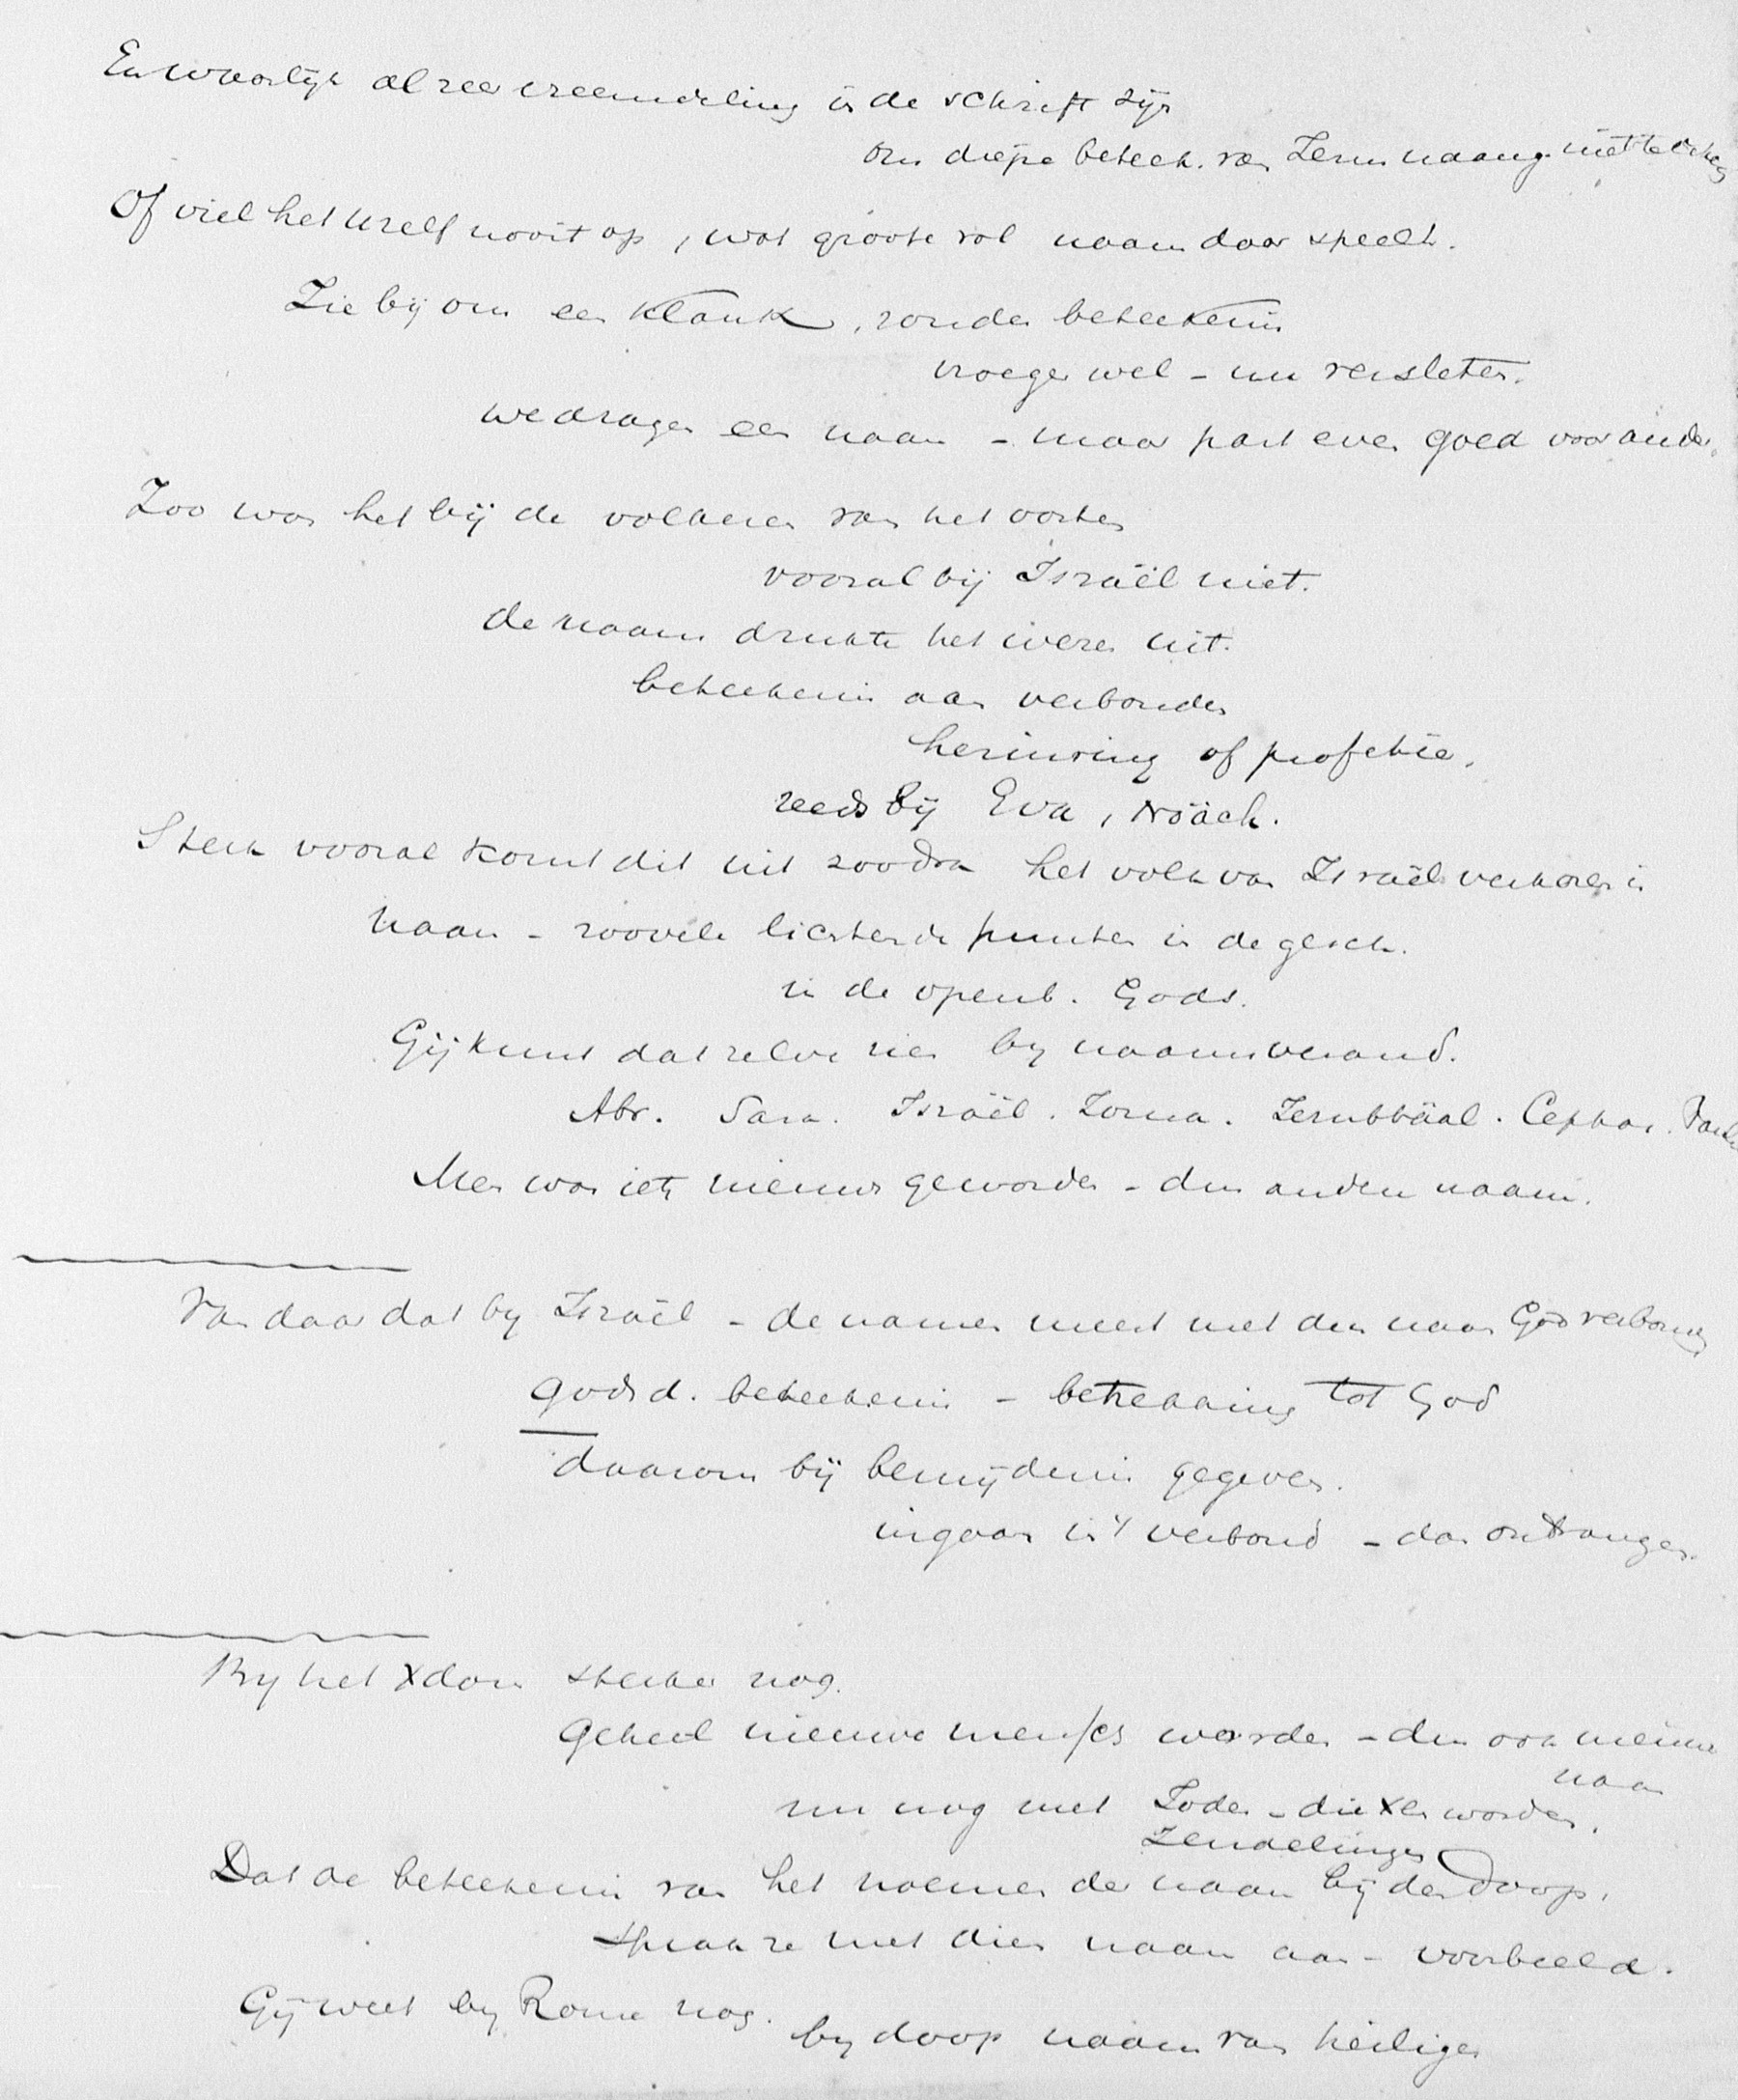 En waarlijk al zeer vreemdeling in de schrift zijn
om diepe beteek. van Jezus naam niet te
Of viel het Uzelf nooit op, wat groote rol naam daar speelt.
Zie bij ons een klank, zonder beteekenis
vroeger wel - nu versleten.
we dragen een naam - maar past even goed voor ander.
Zoo was het bij de volkeren van het oosten
vooral bij Israël niet.
de naam drukte het wezen uit.
beteekenis aan verbonden
herinring of profetie.
reeds bij Eva, Nöach.
Sterk vooral komt dit uit zoodra het volk van Israël verkoren is
Naam - zoovele lichtende punten in de gesch.
in de openb. Gods.
Gij kunt dat zelve zien by naamsverand.
Abr. Sara. Israël. Jozua. Jerubbäal. Cephas. Paulus
Men was iets nieuws geworden - dus andere naam.
Van daar dat by Israël - de namen meest met den naam God verbonden
godsd. beteekenis - betrekking tot God
daarom bij besnijdenis gegeven.
ingaan in 't verbond - dan ontvangen.
By het Xdom sterker nog.
Geheel nieuwe mensch worden - dus ook nieuwe
naam
nu nog met Joden - die Xen worden.
Zendelingen
Dat de beteekenis van het noemen der naam bij den Doop.
spraak ze met dien naam aan - voorbeeld.
Gij weet by Rome nog.
by doop naam van heiligen